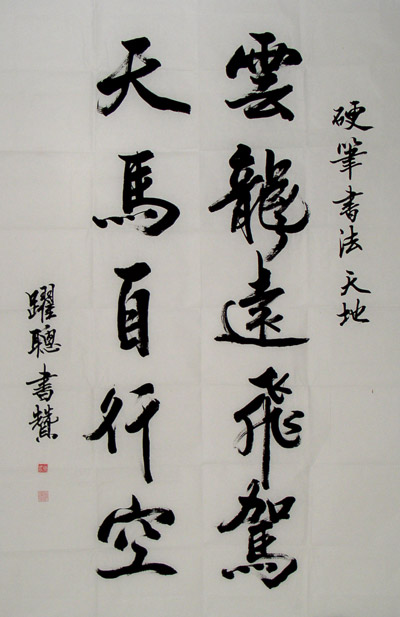 硬筆書法天地
雲龍遠飛駕
天馬自行空
躍聰書贊